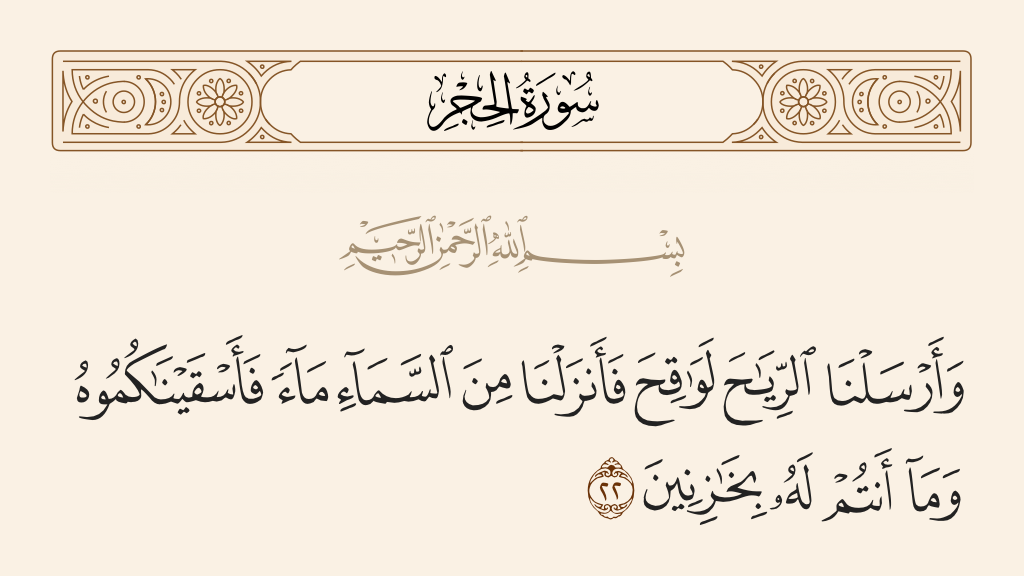 سُورَةُ الحِجْرِ
بِسْمِ ٱللَّهِ ٱلرَّحْمَٰنِ ٱلرَّحِيمِ
وَأَرْسَلْنَا ٱلرِّيَٰحَ لَوَٰقِحَ فَأَنزَلْنَا مِنَ ٱلسَّمَآءِ مَآءً فَأَسْقَيْنَٰكُمُوهُ
وَمَآ أَنتُمْ لَهُۥ بِخَٰزِنِينَ ٢٢